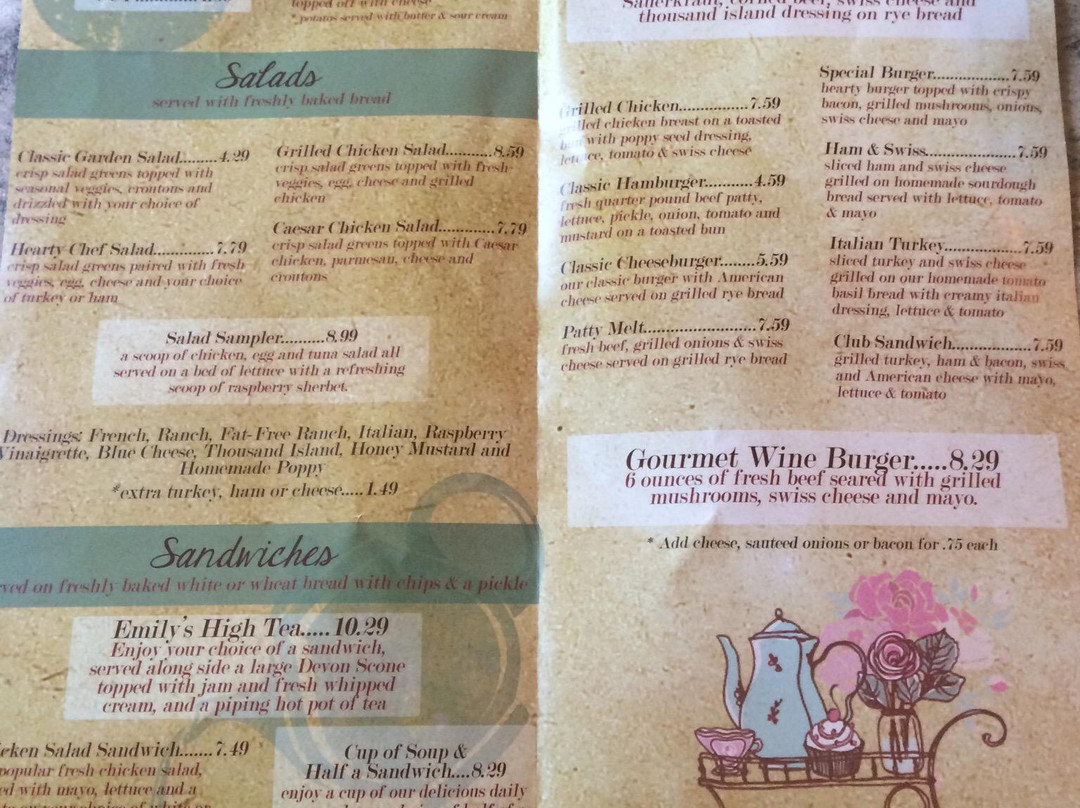 topped off with cheese
* potatoes served with butter & sour cream
Salads
served with freshly baked bread
Classic Garden Salad.........4.29
crisp salad greens topped with
seasonal veggies, croutons and
drizzled with your choice of
dressing
Hearty Chef Salad.............7.79
crisp salad greens paired with fresh
veggies, egg, cheese and your choice
of turkey or ham
Grilled Chicken Salad..........8.59
crisp salad greens topped with fresh
veggies, egg, cheese and grilled
chicken
Caesar Chicken Salad............7.79
crisp salad greens topped with Caesar
chicken, parmesan, cheese and
croutons
Salad Sampler..........8.99
a scoop of chicken, egg and tuna salad all
served on a bed of lettuce with a refreshing
scoop of raspberry sherbet.
Dressings: French, Ranch, Fat-Free Ranch, Italian, Raspberry
Vinaigrette, Blue Cheese, Thousand Island, Honey Mustard and
Homemade Poppy
*extra turkey, ham or cheese.....1.49
Sandwiches
ved on freshly baked white or wheat bread with chips & a pickle
Emily's High Tea.....10.29
Enjoy your choice of a sandwich,
served along side a large Devon Scone
topped with jam and fresh whipped
cream, and a piping hot pot of tea
cken Salad Sandwich.......7.49
popular fresh chicken salad,
ed with mayo, lettuce and a
Cup of Soup &
Half a Sandwich....8.29
enjoy a cup of our delicious daily
Sauerkraut, corned beef, swiss cheese and
thousand island dressing on rye bread
Grilled Chicken..............7.59
grilled chicken breast on a toasted
bun with poppy seed dressing,
lettuce, tomato & swiss cheese
Classic Hamburger...........4.59
fresh quarter pound beef patty,
lettuce, pickle, onion, tomato and
mustard on a toasted bun
Classic Cheeseburger........5.59
our classic burger with American
cheese served on grilled rye bread
Patty Melt..........................7.59
fresh beef, grilled onions & swiss
cheese served on grilled rye bread
Special Burger..................7.59
hearty burger topped with crispy
bacon, grilled mushrooms, onions,
swiss cheese and mayo
Ham & Swiss.....................7.59
sliced ham and swiss cheese
grilled on homemade sourdough
bread served with lettuce, tomato
& mayo
Italian Turkey..................7.59
sliced turkey and swiss cheese
grilled on our homemade tomato
basil bread with creamy italian
dressing, lettuce & tomato
Club Sandwich...................7.59
grilled turkey, ham & bacon, swiss
and American cheese with mayo,
lettuce & tomato
Gourmet Wine Burger.....8.29
6 ounces of fresh beef seared with grilled
mushrooms, swiss cheese and mayo.
* Add cheese, sauteed onions or bacon for .75 each